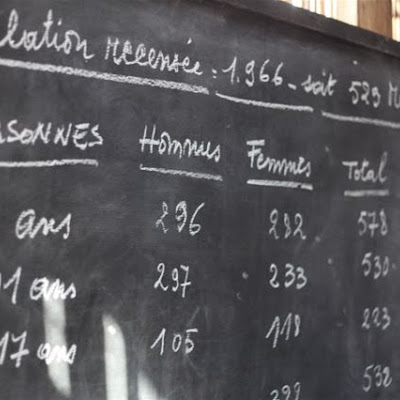 lation recensée : 1.966 - soit 529 M
SONNES Hommes Femmes Total
ans 296 282 578
1 ans 297 233 530
17 ans 105 118 223
532